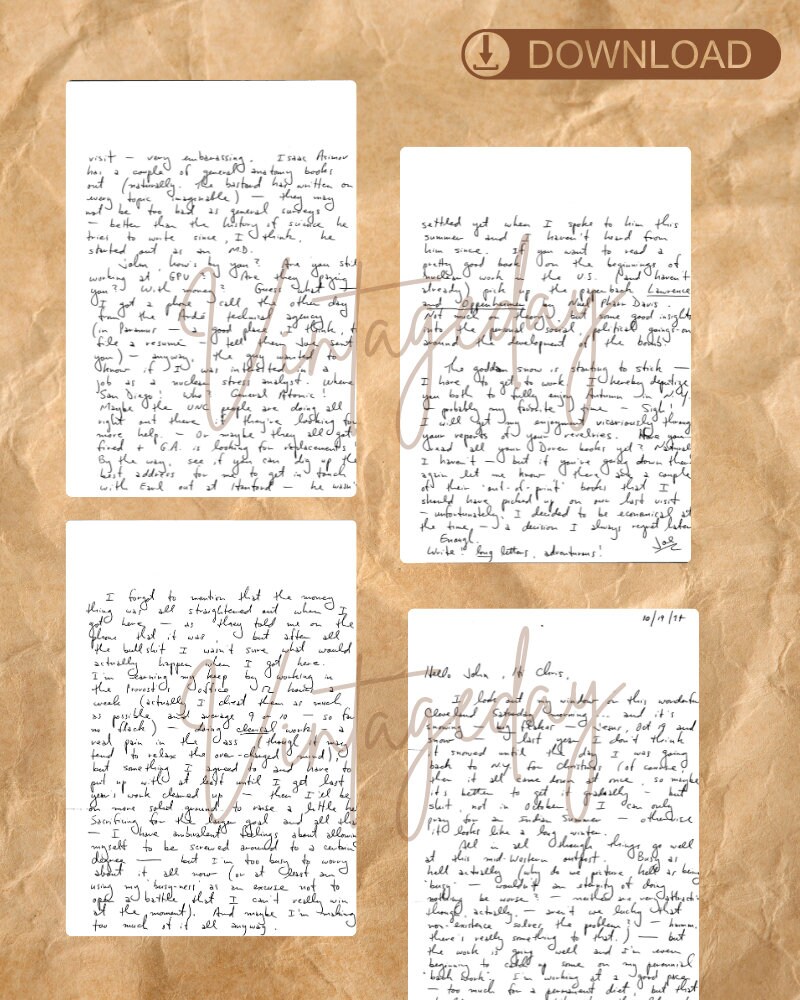 DOWNLOAD
visit — very embarassing. Isaac Asimov
has a couple of general anatomy books
out (naturally. The bastard has written on
every topic imaginable) — they may
not be too bad as general surveys
— better than the history of science he
tries to write since, I think, he
started out as an M.D.
John, how's by you? Are you still
working at GPU? Are they paying
you? With money? Guess what —
I got a phone call the other day
from the Andre technical agency
(in Paramus — good place, I think, to
file a resume — tell them Joe sent
you) — anyway, the guy wanted to
know if I was interested in a
job as a nuclear stress analyst. Where
San Diego! Who? General Atomic!
Maybe the UNC people are doing all
right out there & they're looking for
more help. — Or maybe they all got
fired & G.A. is looking for replacements
By the way, see if you can dig up the
best address for me to get in touch
with Earl out at Stanford — he wasn't
settled yet when I spoke to him this
summer and I haven't heard from
him since. If you want to read a
pretty good book on the beginnings of
nuclear work in the U.S. (and haven't
already) pick up the paperback Lawrence
and Oppenheimer by Nuel Pharr Davis.
Not much on theory, but some good insights
into the personal, social, political goings-on
around the development of the bomb.
The goddam snow is starting to stick —
I have to get to work. I hereby deputize
you both to fully enjoy Autumn in N.Y.
— probably my favorite time — Sigh!
I will get my enjoyment vicariously through
your reports of your revelries. Have you
read all your Dover books yet? Natural
I haven't — but if you're going down there
again let me know — there are a couple
of their "out-of-print" books that I
should have picked up on our last visit
— unfortunately I decided to be economical at
the time — a decision I always regret later
Enough.
Write! long letters, adventurous!
Joe
I forgot to mention that the money
thing was all straightened out when I
got here — as they told me on the
phone that it was, but after all
the bullshit I wasn't sure what would
actually happen when I got here.
I'm earning my keep by working in
the Provost's office 12 hours a
week (actually I cheat them as much
as possible and average 9 or 10 — so far
no flack) — doing clerical work — a
real pain in the ass (though it may
tend to relax the over-charged mind),
but something I agreed to and have to
put up with at least until I get last
year's work cleaned up — then I'll be
on more solid ground to raise a little he
Sacrificing for the larger goal and all this
— I have ambivalent feelings about allowing
myself to be screwed around to a certain
degree — but I'm too busy to worry
about it all now (or at least am
using my busy-ness as an excuse not to
open a battle that I can't really win
at the moment). And maybe I'm making
too much of it all anyway.
10/19/74
Hello John, Hi Chris,
I look out my window on this wonderful
Cleveland Saturday morning ... and it's
snowing — my Oct 19 and
snow — last year I don't think
it snowed until the day I was going
back to N.Y. for Christmas (of course
then it all came down at once, so maybe
it's better to get it gradually — but
shit, not in October). I can only
pray for an Indian Summer — otherwise
it looks like a long winter.
All in all though things go well
at this mid-Western outpost. Busy as
hell actually (why do we picture hell as being
"busy" — wouldn't an eternity of doing
nothing be worse? — neither are very attractive
though, actually. — aren't we lucky that
non-existence solves the problem? — hmmm,
there's really something to that.) — but
the work is going well and I'm even
beginning to catch up some on my perennial
"back work". I'm working at a good pace
— too much for a permanent diet, but that
Vintageday
Vintageday